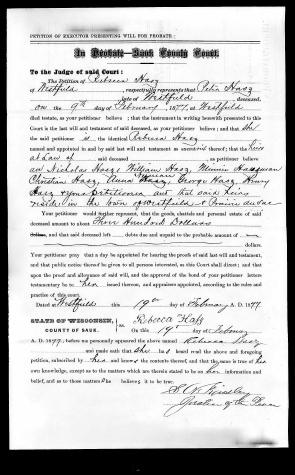 PETITION OF EXECUTOR PRESENTING WILL FOR PROBATE.
In Probate—Sauk County Court.
To the Judge of said Court:
The Petition of Rebecca Haaz
of Westfield, respectfully represents that Peter Haaz
late of Westfield deceased,
on the day of February 1877, at Westfield
died testate, as your petitioner believe ; that the instrument in writing herewith presented to this
Court is the last will and testament of said deceased, as your petitioner believe and that
the said petitioner is the identical Rebecca Haaz
named and appointed in and by said last will and testament as executrix thereof; that the heirs
at Law of said deceased as petitioner believe
are Nicholas Haaz, William Haaz, Minnie
Christian Haaz, Anna Haaz, George Haaz, Henry
Haaz & petitioner and that said heirs
reside in the town of Westfield & Prairie du Sac
Your petitioner would further represent, that the goods, chattels and personal estate of said
deceased amount to about Three Hundred Dollars
dollars, and that said deceased left debts due and unpaid to the probable amount of
dollars.
Your petitioner pray that a day be appointed for hearing the proofs of said last will and testament,
and that public notice thereof be given to all persons interested, as this Court shall direct; and that
upon the proof and allowance of said will, and the approval of the bond of your petitioner letters
testamentary be to her issued thereon, and appraisers appointed, according to the rules and
practice of this court.
Dated at Westfield this 19th day of February A. D. 1877.
STATE OF WISCONSIN,
COUNTY OF SAUK.
ss.
Rebecca Haß
On this 19th day of February
A. D. 1877, before me personally appeared the above named Rebecca Haaz
and made oath that she has read the above and foregoing
petition, subscribed by her, and knows the contents thereof, and that the same is true of her
own knowledge, except as to the matters which are therein stated to be on her information and
belief, and as to those matters she believes it to be true.
Justice of the Peace